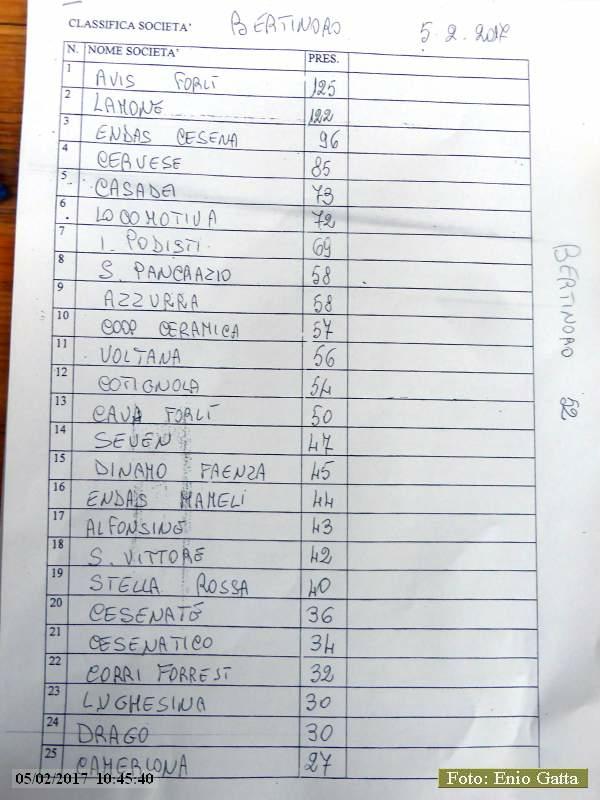 CLASSIFICA SOCIETA' BERTINORO 5.2.2017
N. NOME SOCIETA' PRES.
1 AVIS FORLÌ 125
2 LAMONE 122
3 ENDAS CESENA 96
4 CERVESE 85
5 CASADEI 73
6 LOCOMOTIVA 72
7 I. PODISTI 69
8 S. PANCRAZIO 58
9 AZZURRA 58
10 COOP CERAMICA 57
11 VOLTANA 56
12 COTIGNOLA 54
13 CAVA FORLÌ 50
14 SEVEN 47
15 DINAMO FAENZA 45
16 ENDAS MAMELI 44
17 ALFONSINE 43
18 S. VITTORE 42
19 STELLA ROSSA 40
20 CESENATE 36
21 CESENATICO 34
22 CORRI FORREST 32
23 LUGHESINA 30
24 DRAGO 30
25 CAMERLONA 27
BERTINORO 52
05/02/2017 10:45:40
Foto: Enio Gatta